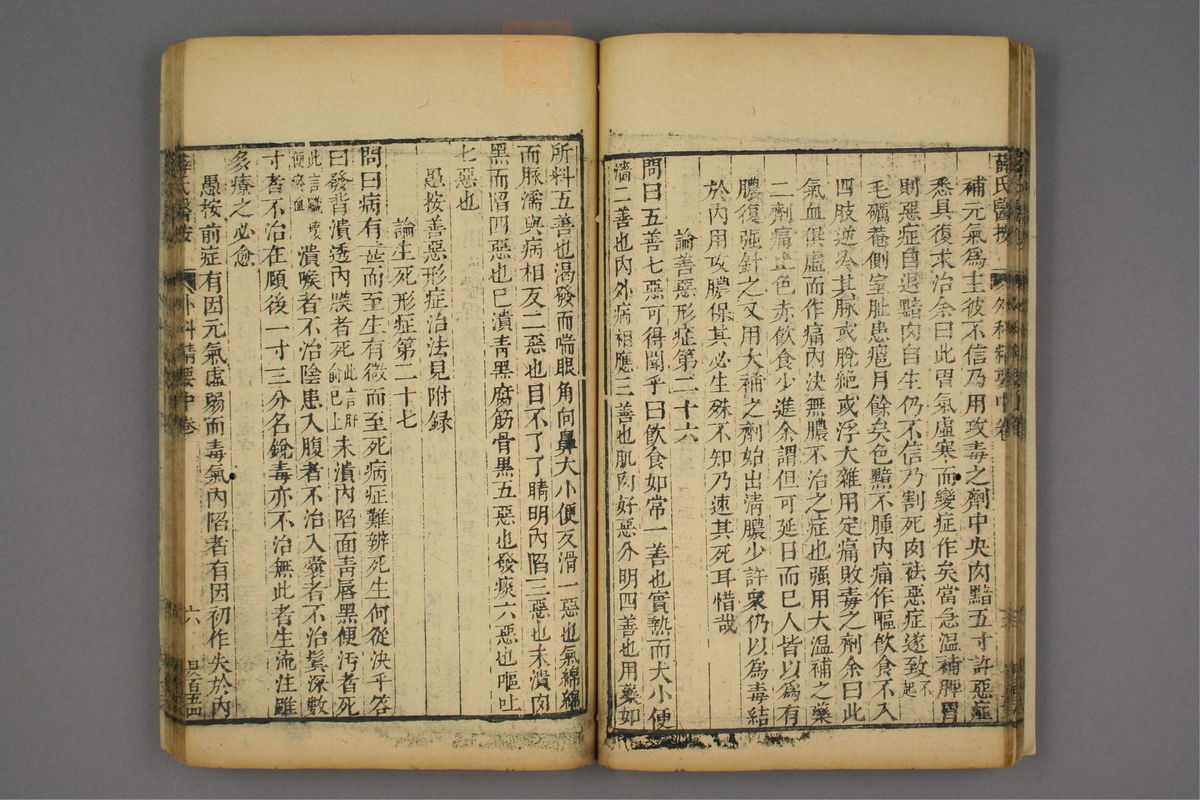 薛氏醫按 外科精要中卷
補元氣爲主彼不信乃用攻毒之劑中央肉黯五寸許惡症
悉具復求治余曰此胃氣虛寒而變症作矣當急温補脾胃
則惡症自退黯肉自生仍不信乃割死肉祛惡症遂致不起
毛礪菴側室趾患瘡月餘矣色黯不腫內痛作嘔飲食不入
四肢逆冷其脉或脫絶或浮大雜用定痛敗毒之劑余曰此
氣血俱虛而作痛內決無膿不治之症也强用大温補之藥
二劑痛止色赤飲食少進余謂但可延日而已人皆以爲有
膿復强針之又用大補之劑始出淸膿少許衆仍以爲毒結
於內用攻膿保其必生殊不知乃速其死耳惜哉
論善惡形症第二十六
問曰五善七惡可得聞乎曰飲食如常一善也實熱而大小便
濇二善也內外病相應三善也肌肉好惡分明四善也用藥如
所料五善也渴發而喘眼角向鼻大小便反滑一惡也氣綿綿
而脉濡與病相反二惡也目不了了睛明內陷三惡也未潰肉
黑而陷四惡也已潰靑黑腐筋骨黑五惡也發痰六惡也嘔吐
七惡也
愚按善惡形症治法見附錄
論生死形症第二十七
問曰病有甚而至生有微而至死病症難辨死生何從決乎荅
曰發背潰透內膜者死此言肝俞已上未潰內陷面靑唇黑便汚者死
此言臟壞便瘀血潰喉者不治陰患入腹者不治入嚢者不治鬂深數
寸者不治在頤後一寸三分名銳毒亦不治無此者生流注雖
多療之必愈
愚按前症有因元氣虛弱而毒氣內陷者有因初作失於內
薛氏醫按 外科精要中卷 六